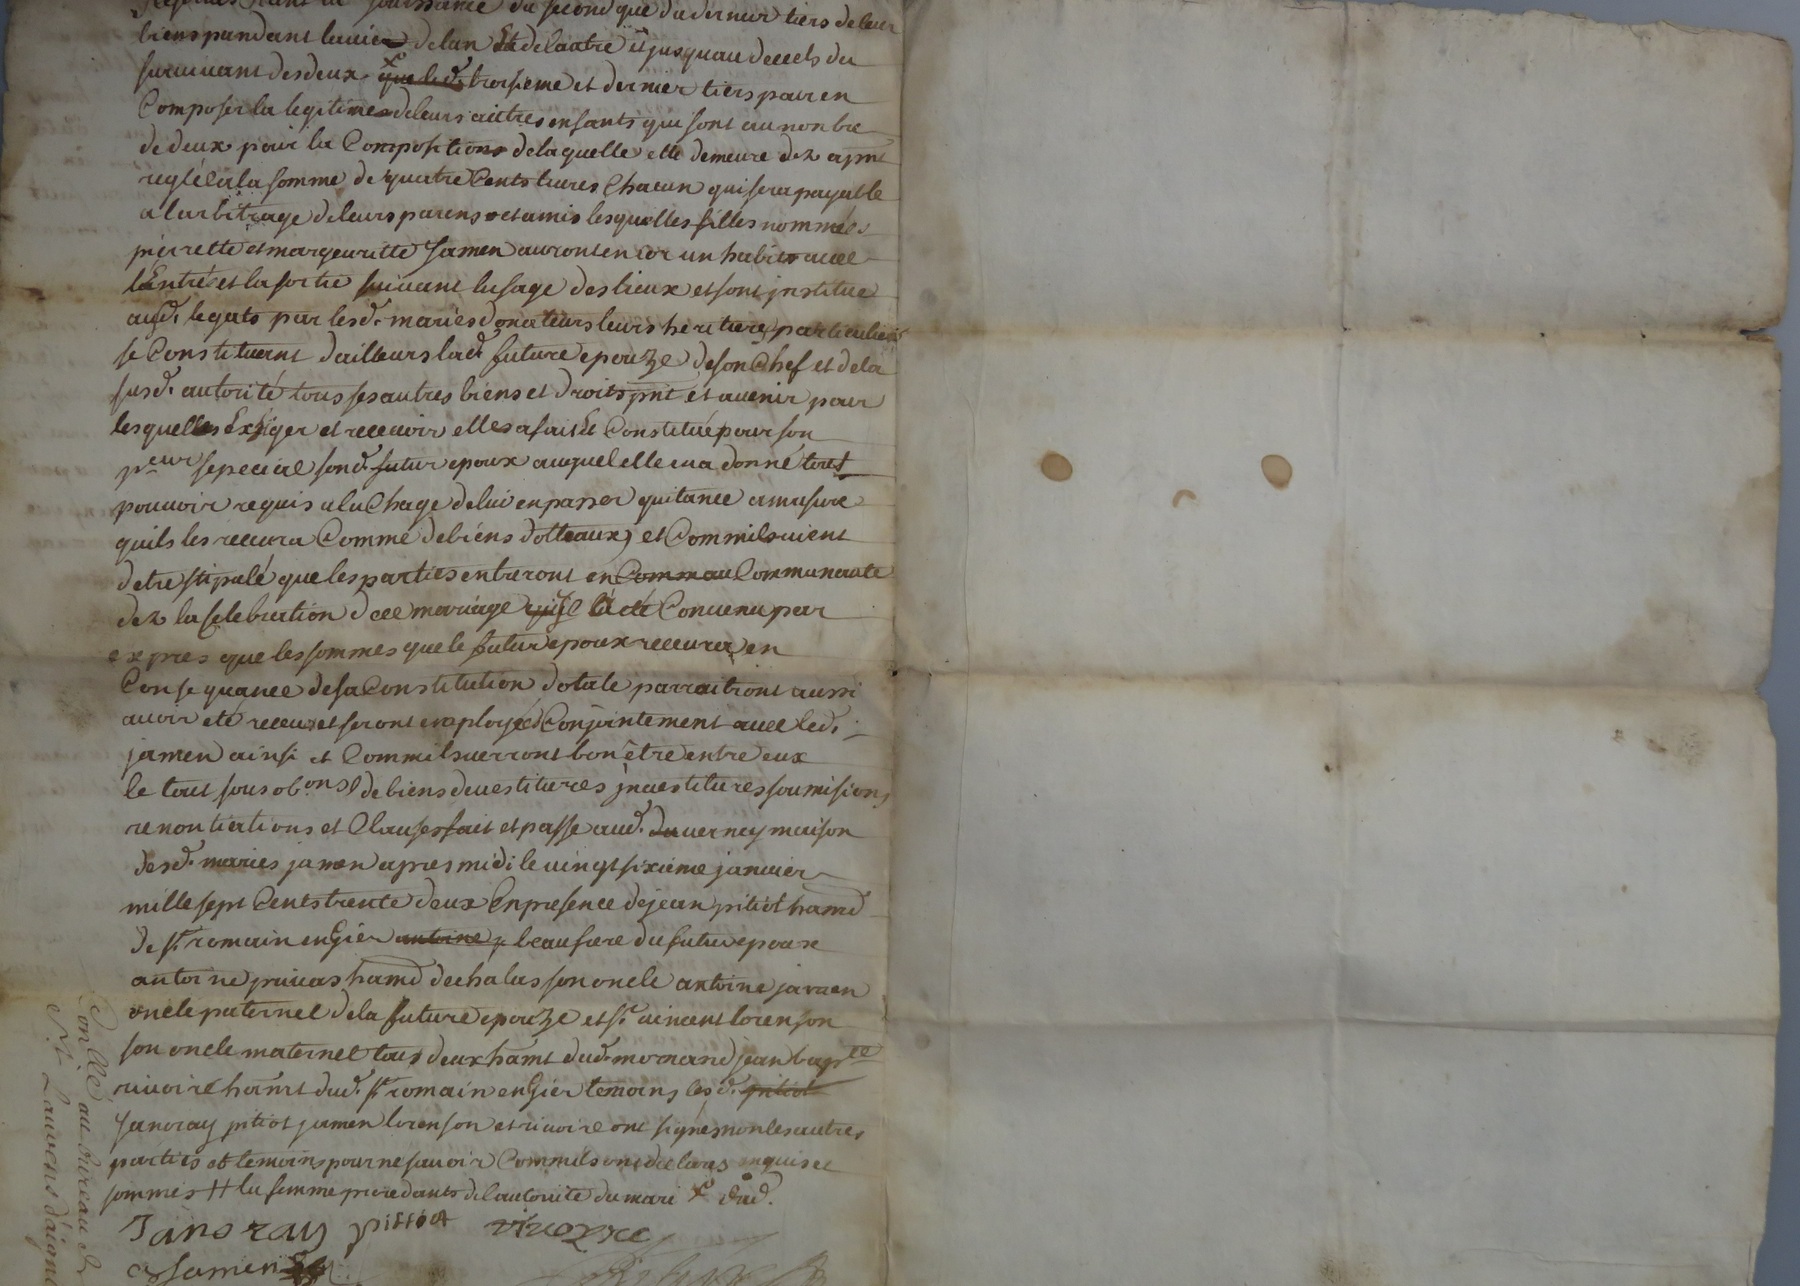 jouissance du second que du dernier tiers de leur
biens pandant la vie de lun Et de lautre et jusquau decels du
survivant des deux que led. troisieme et dernier tiers pour en
Composer la legitime de leurs autres enfants qui sont au nonbre
de deux pour la Composition de laquelle elle demeure dez apnt
reglé a la somme de quatre Cents livres Chacun qui sera payable
a larbitrage de leurs parens et amis lesquelles filles nommées
pierrette et margeuritte Jamen auront encor un habit avec
lEntré et la sortie suivant lusage des lieux et sont jnstitue
aud. legats par lesd. mariés donateurs leurs heritieres particulieres
se Constituant dailleurs lad. future epouze de son Chef et de la
susd. autorité tous ses autres biens et droits pnt et avenir pour
lesquelles Exiger et recevoir elles a fait Et Constitué pour son
peur sepecial sond. futur epoux auquel elle en a donné tout
pouvoir requis a la Chage de lui en passer quitance a mesure
quils les recevra Comme de biens dotteaux, et Comm il vient
detre stipulé que les parties entreront en Commau Communauté
dez la selebration dcce mariage Convenu par
expres que les sommes que le futur epoux recevra en
Conse quance de sa Constitution dotale parraitront aussi
avoir eté receu et seront employés Conjointement avec led.
jamen ainsi et Comm ils verront bon être entre eux
le tout sous obons de biens devestitures jnvestitures soumisions
renontiations et Clauses fait et passé aud. duverney maison
desd. mariés jamen apres midi le vingt sixieme janvier
mille sept Cents trente deux En presence de jean pitiot hand
de st romain en Gier antoine beaufrere du futur epoux
antoine privas hand dechalas son oncle antoine jamen
oncle paternel de la future epouze et sr. vincent lorenson
son oncle maternel tous deux hants dud. mornand jean bapte
rivoire hant dud. st romain en Gier temoins lesd. pitiot
Janoray pitiot jamen lorenson et rivoire ont signés non les autres
parties et temoins pour ne savoir Comm ils ont declarés enquis et
sommés # la femme procedants de lautorité du mari x dud.
Janoray pitiot rivoyre
a Jamen
Conllé au bureau de
St Laurens d'aigny